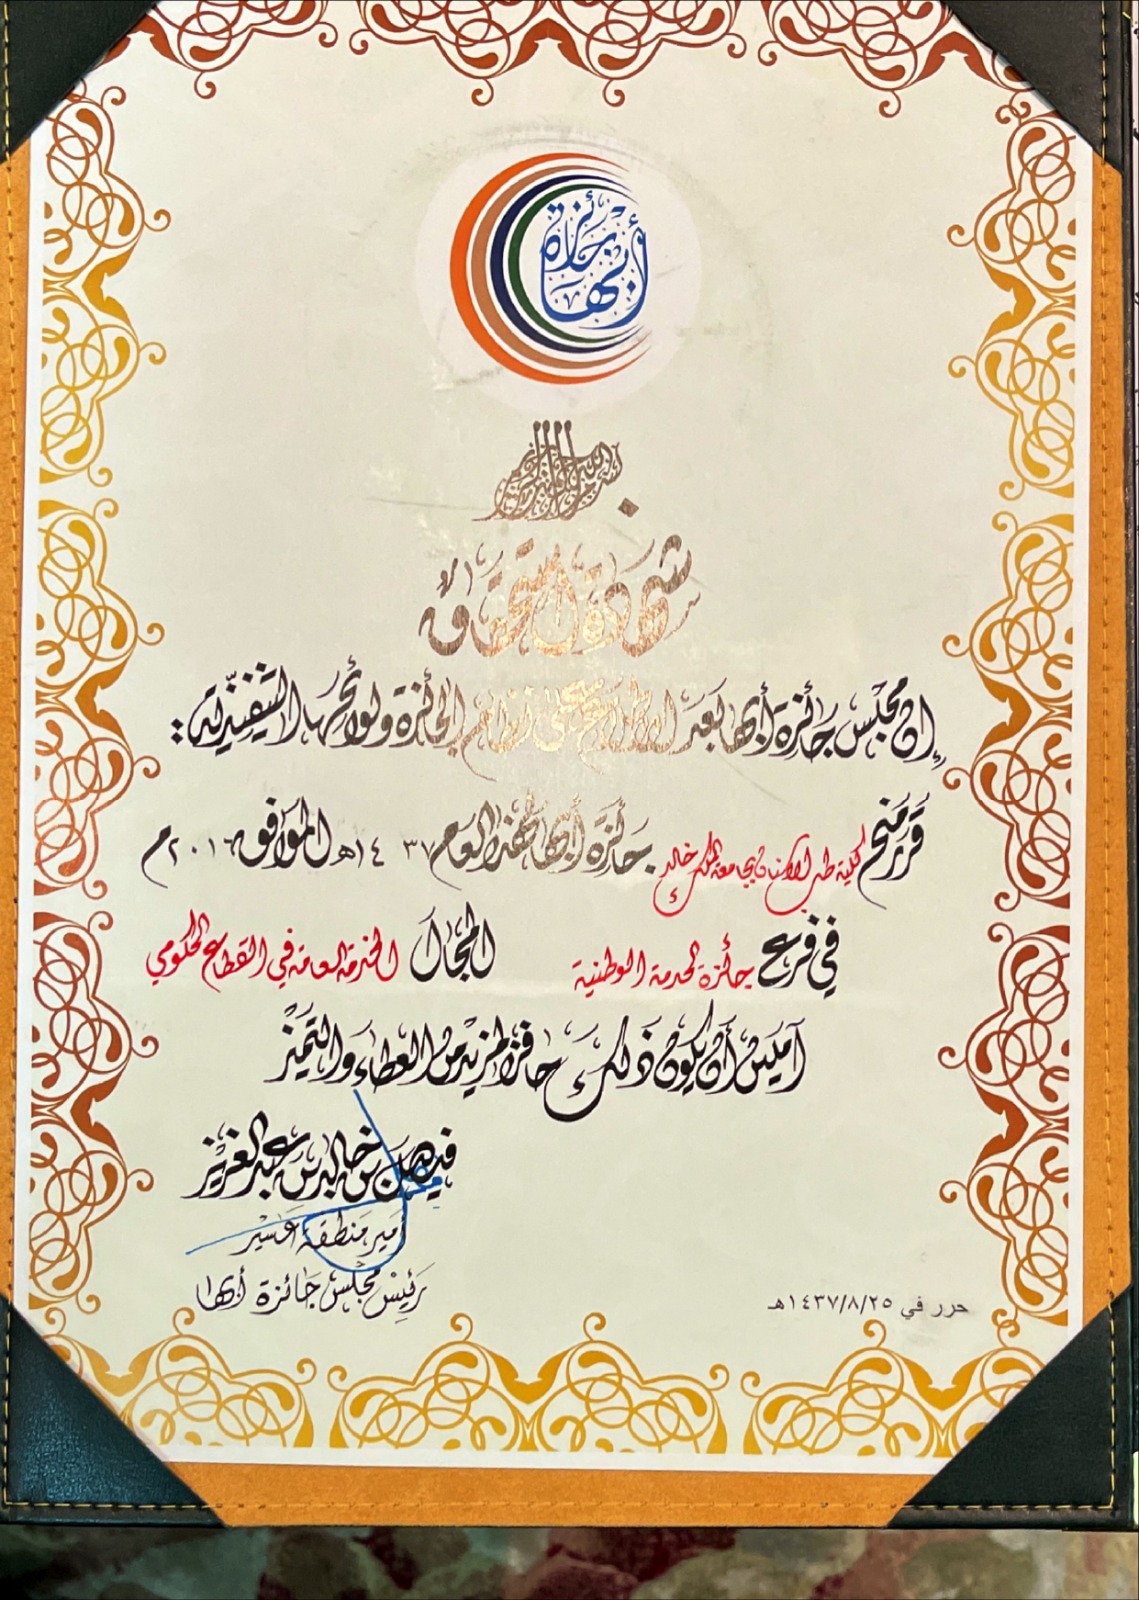 جائزة أبها
بسم الله الرحمن الرحيم
شهادة استحقاق
إن مجلس جائزة أبها بعد الاطلاع على نظام الجائزة ولوائحها التنفيذية :
قرر منح كلية طب الاسنان بجامعة الملك خالد جائزة أبها لهذا العام ١٤٣٧هـ الموافق ٢٠١٦م
في فرع جائزة الخدمة الوطنية المجال الخدمة العامة في القطاع الحكومي
آملين أن يكون ذلك حافزا لمزيد من العطاء والتميز
فيصل بن خالد بن عبدالعزيز
أمير منطقة عسير
رئيس مجلس جائزة أبها
حرر في ١٤٣٧/٨/٢٥هـ